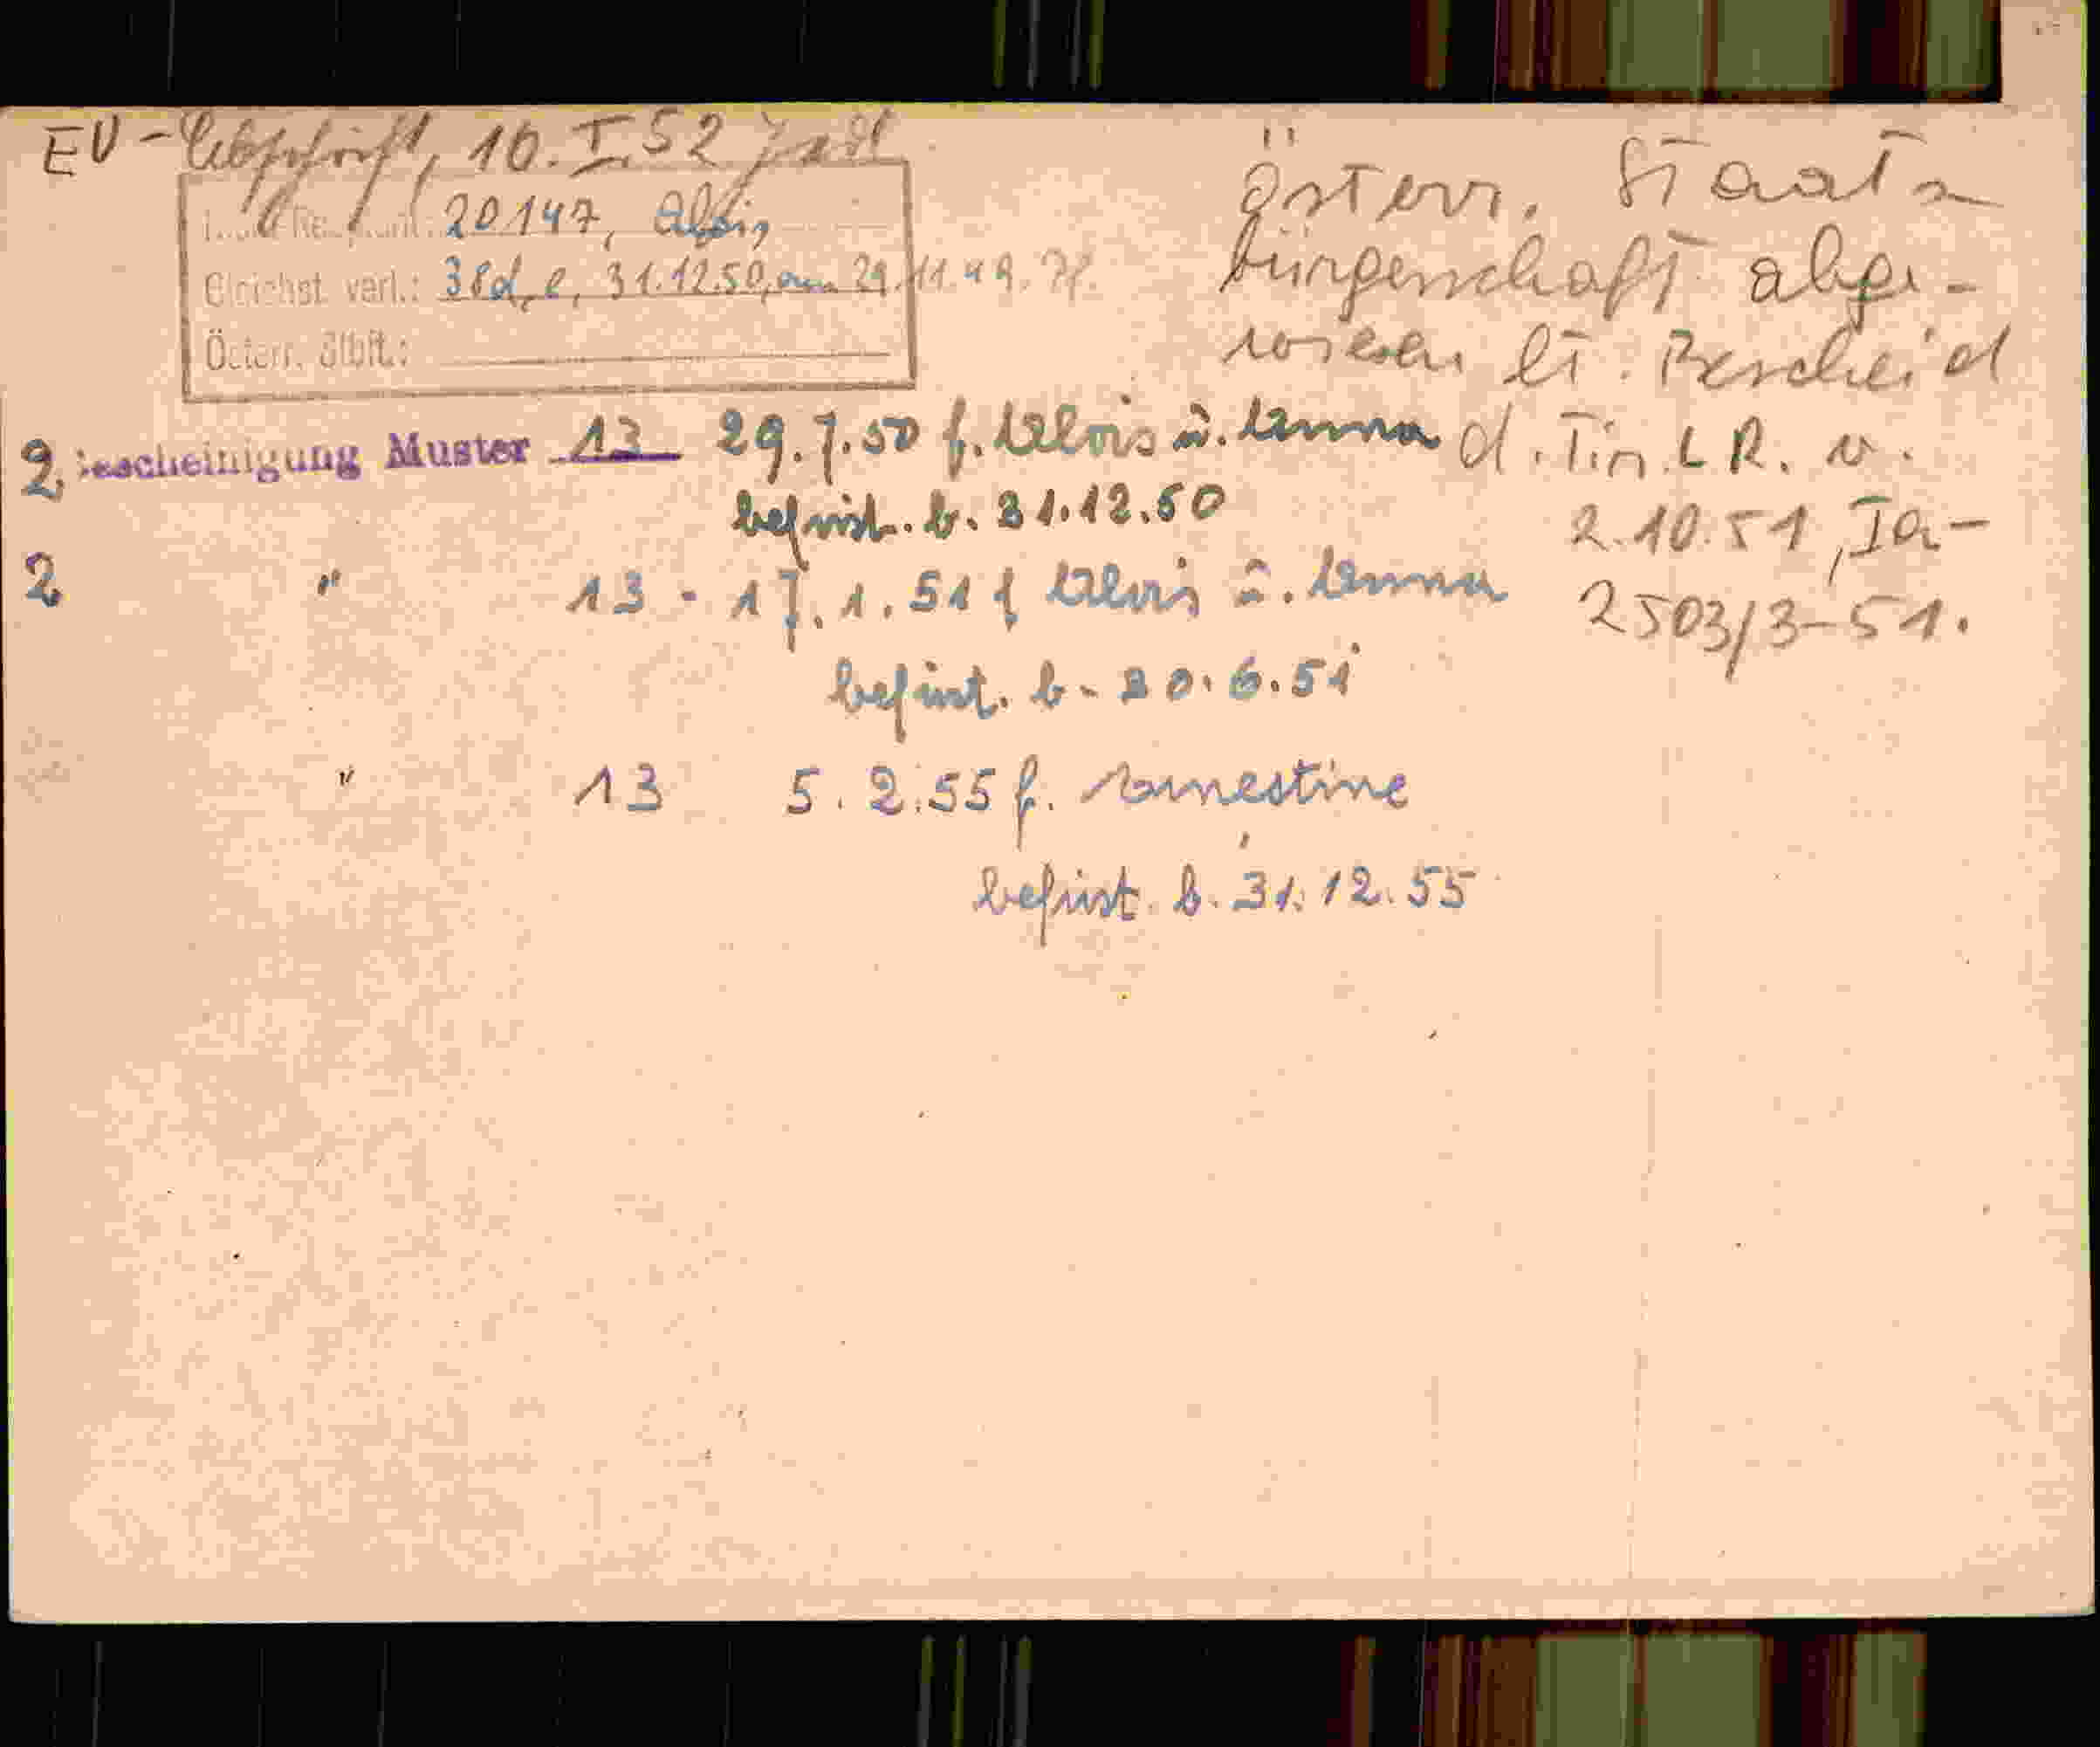 EV-Abschrift, 10.I.52
20147, Alois
Gleichst. verl.: 38d, e, 31.12.50, am 29.11.49.
Österr. Stbft.:
österr. Staats
bürgerschaft abge-
wiesen lt. Bescheid
d. Tir. L R. v.
2.10.51, Ia-
2503/3-51.
2 Bescheinigung Muster 13 29.7.50 f. Alois u. Anna
befrist. b. 31.12.50
2 " 13 - 17.1.51 f Alois u. Anna
befrist. b. 30.6.51
" 13 5.2.55 f. Ernestine
befrist. b. 31.12.55